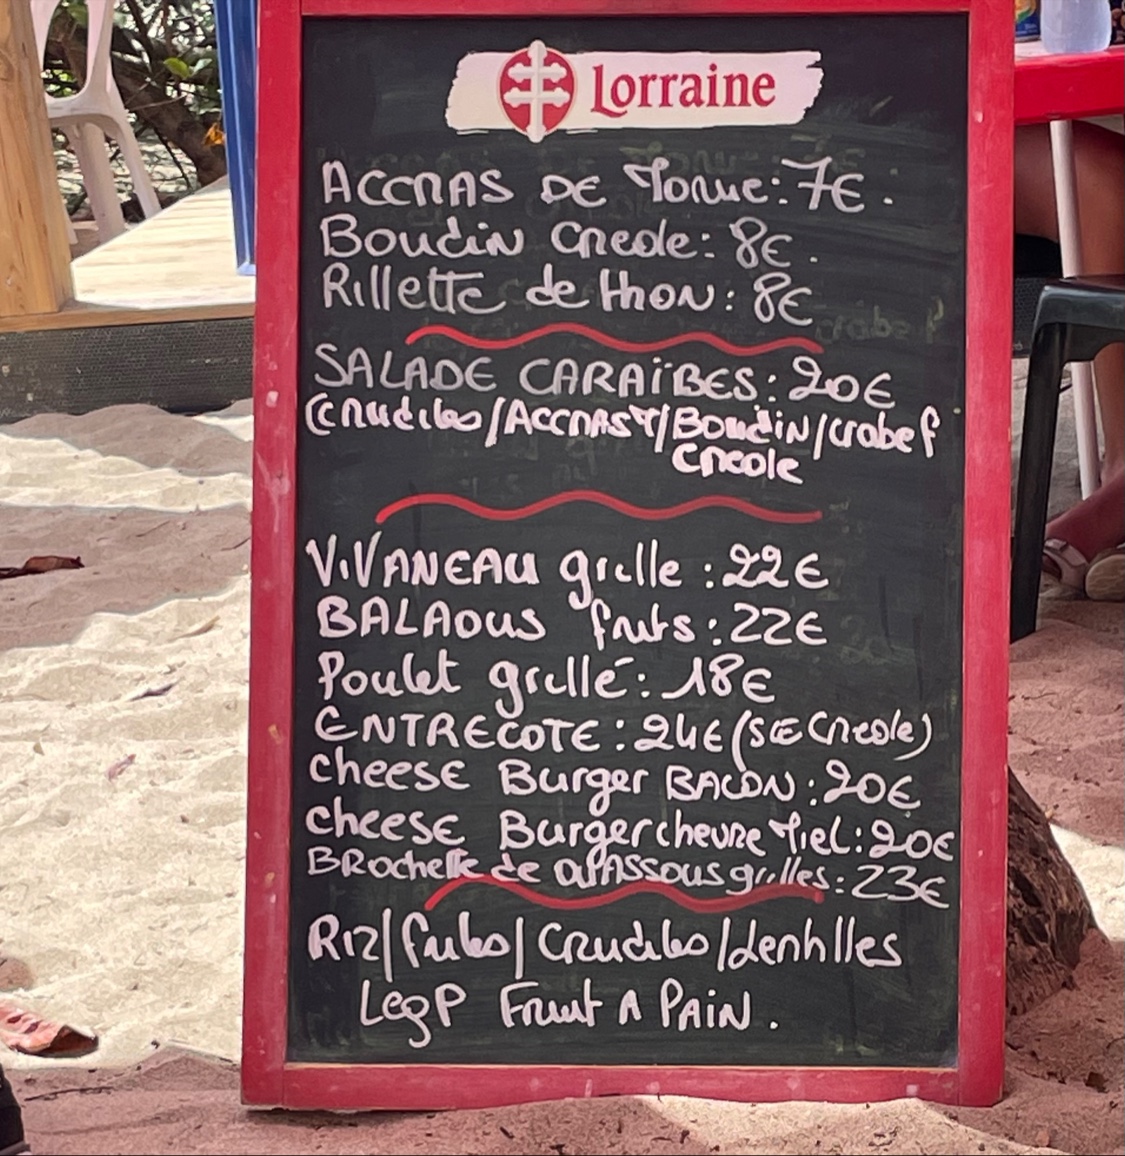 Lorraine
ACCRAS DE Morue: 7€.
Boudin Creole: 8€.
Rillette de thon: 8€
SALADE CARAÏBES: 20€
(Crudites/ACCRAS M/Boudin/crabe f
Creole
ViVANEAU grille: 22€
BALAOUS frits: 22€
Poulet grillé: 18€
ENTRECOTE: 24€ (SCE Creole)
cheese Burger BACON: 20€
cheese Burger chevre Miel: 20€
BRochette de OUASSOUS grilles: 23€
Riz/frites/Crudites/lentilles
LegP Fruit A PAiN.